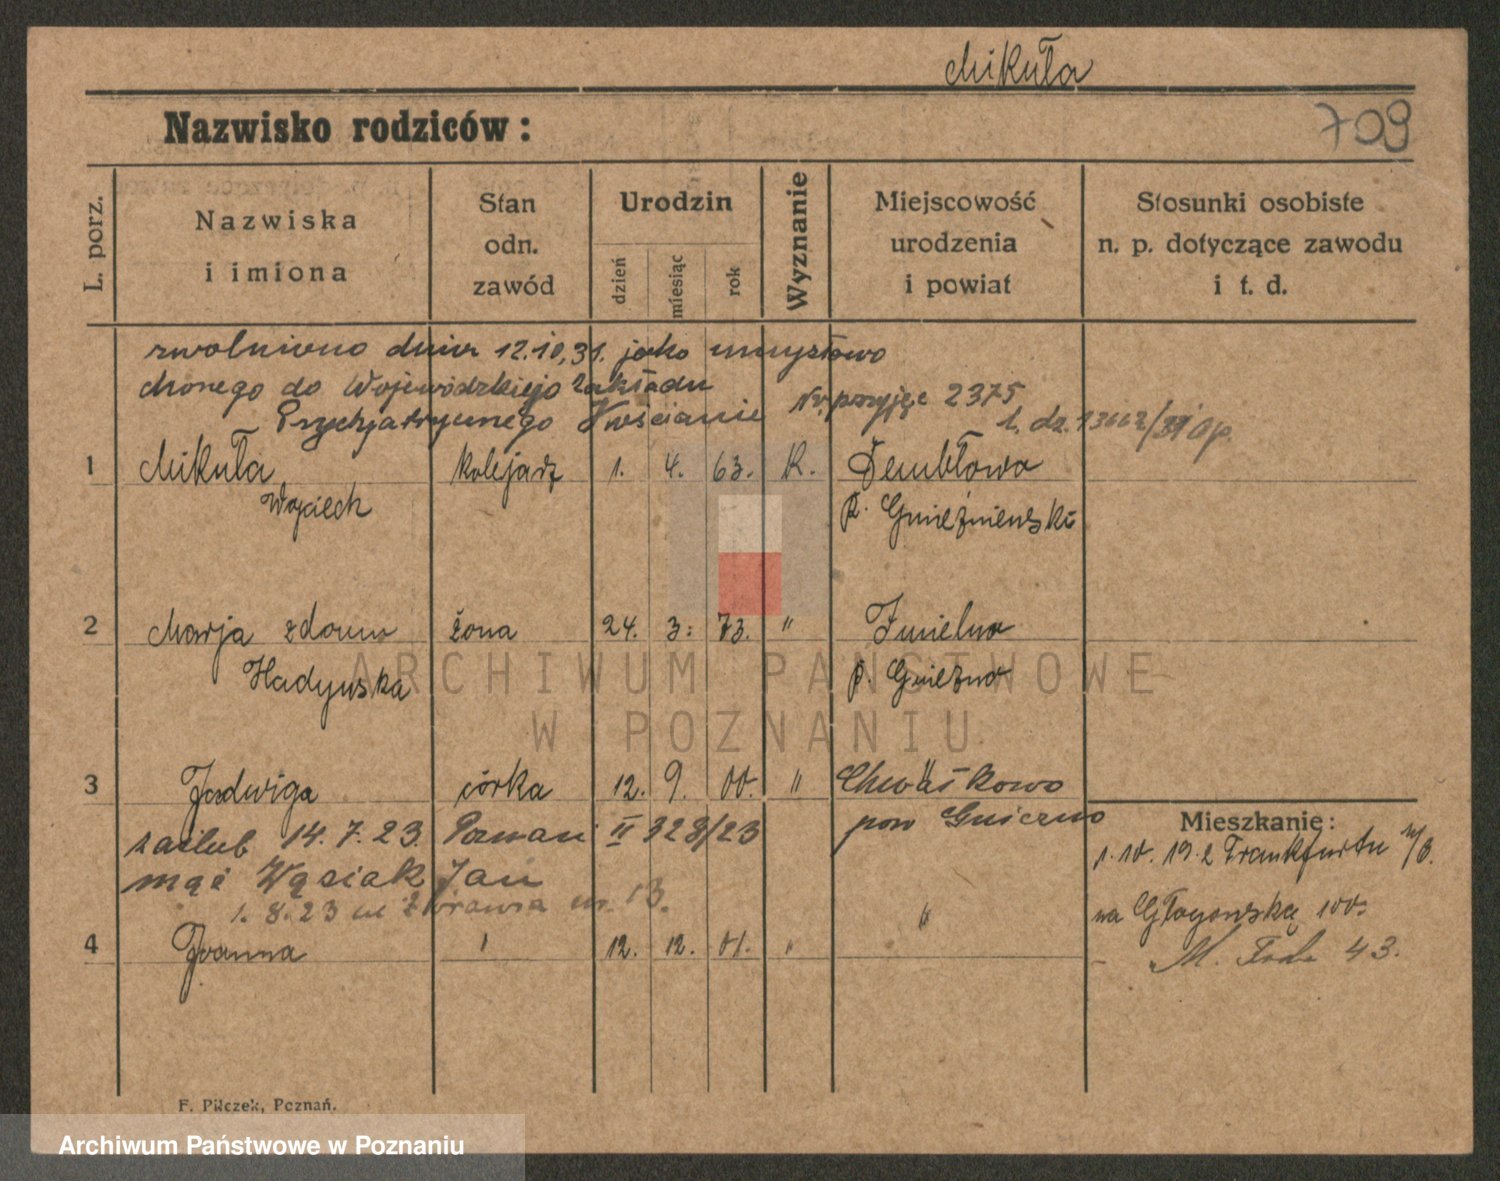 Mikuła
Nazwisko rodziców:
709
L. porz.
Nazwiska i imiona
Stan odn. zawód
Urodzin
dzień
miesiąc
rok
Wyznanie
Miejscowość urodzenia i powiat
Stosunki osobiste n. p. dotyczące zawodu i t. d.
zwolniono dnia 12.10.31. jako umysłowo
chorego do Wojewódzkiego Zakładu
Psychjatrycznego Kościanie Nr. 2375
l. dz. 13662/31
1 Mikuła kolejarz 1. 4. 63. R. Dembłowo
Wojciech p. Gnieźnieński
2 Marja z domu żona 24. 3. 73. " Imielno
Hadyńska p. Gniezno
3 Jadwiga córka 12. 9. 00. " Chwałkowo
zaślub 14. 7. 23. Poznań II 328/23 pow Gniezno
Mieszkanie:
mąż Wąsiak Jan
1. 10. 19. z Frankfurtu n/O.
1. 8. 23 ul Żórawia nr. 13.
na Głogowską 100.
4 Joanna " 12. 12. 01. " "
M. Focha 43.
F. Pilczek, Poznań.
ARCHIWUM PAŃSTWOWE
W POZNANIU
Archiwum Państwowe w Poznaniu